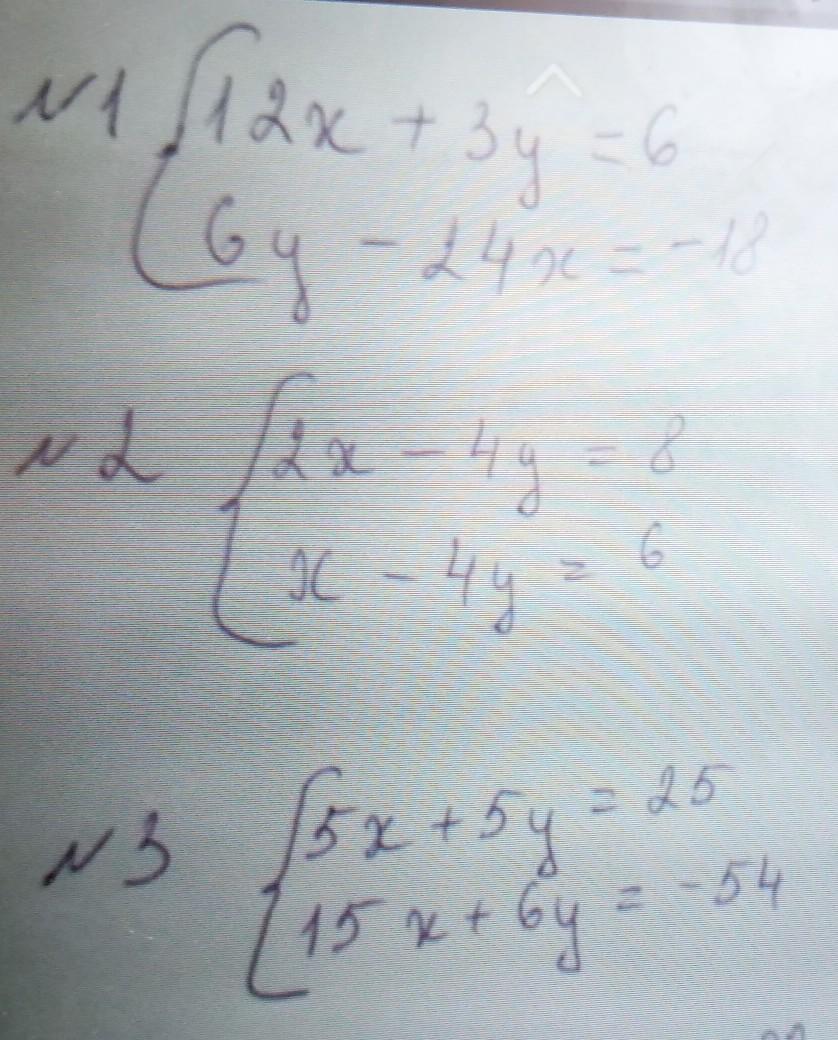 N1 12x + 3y = 6
6y - 24x = -18
N2 2x - 4y = 8
x - 4y = 6
N3 5x + 5y = 25
15x + 6y = -54